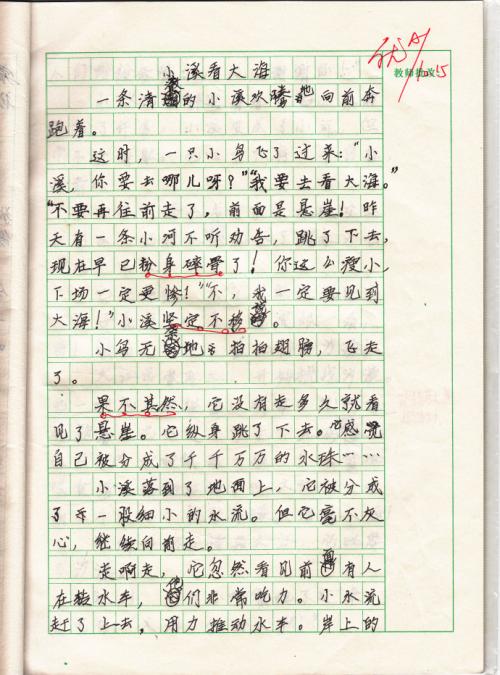 优 A
教师批改:
小溪看大海
一条清澈的小溪欢腾地向前奔
跑着。
这时，一只小鸟飞了过来：“小
溪，你要去哪儿呀？”“我要去看大海。”
“不要再往前走了，前面是悬崖！昨
天有一条小河不听劝告，跳了下去，
现在早已粉身碎骨了！你这么瘦小，
下场一定更惨！”“不，我一定要见到
大海！”小溪坚定不移的。
小鸟无奈地拍拍翅膀，飞走
了。
果不其然，它没有走多久就看
见了悬崖。它纵身跳了下去。它感觉
自己被分成了千千万万的水珠……
小溪落到了地面上，它被分成
了一股细小的水流。但它毫不灰
心，继续向前走。
走啊走，它忽然看见前面有人
在转水车，他们非常吃力。小水流
赶了上去，用力推动水车。岸上的